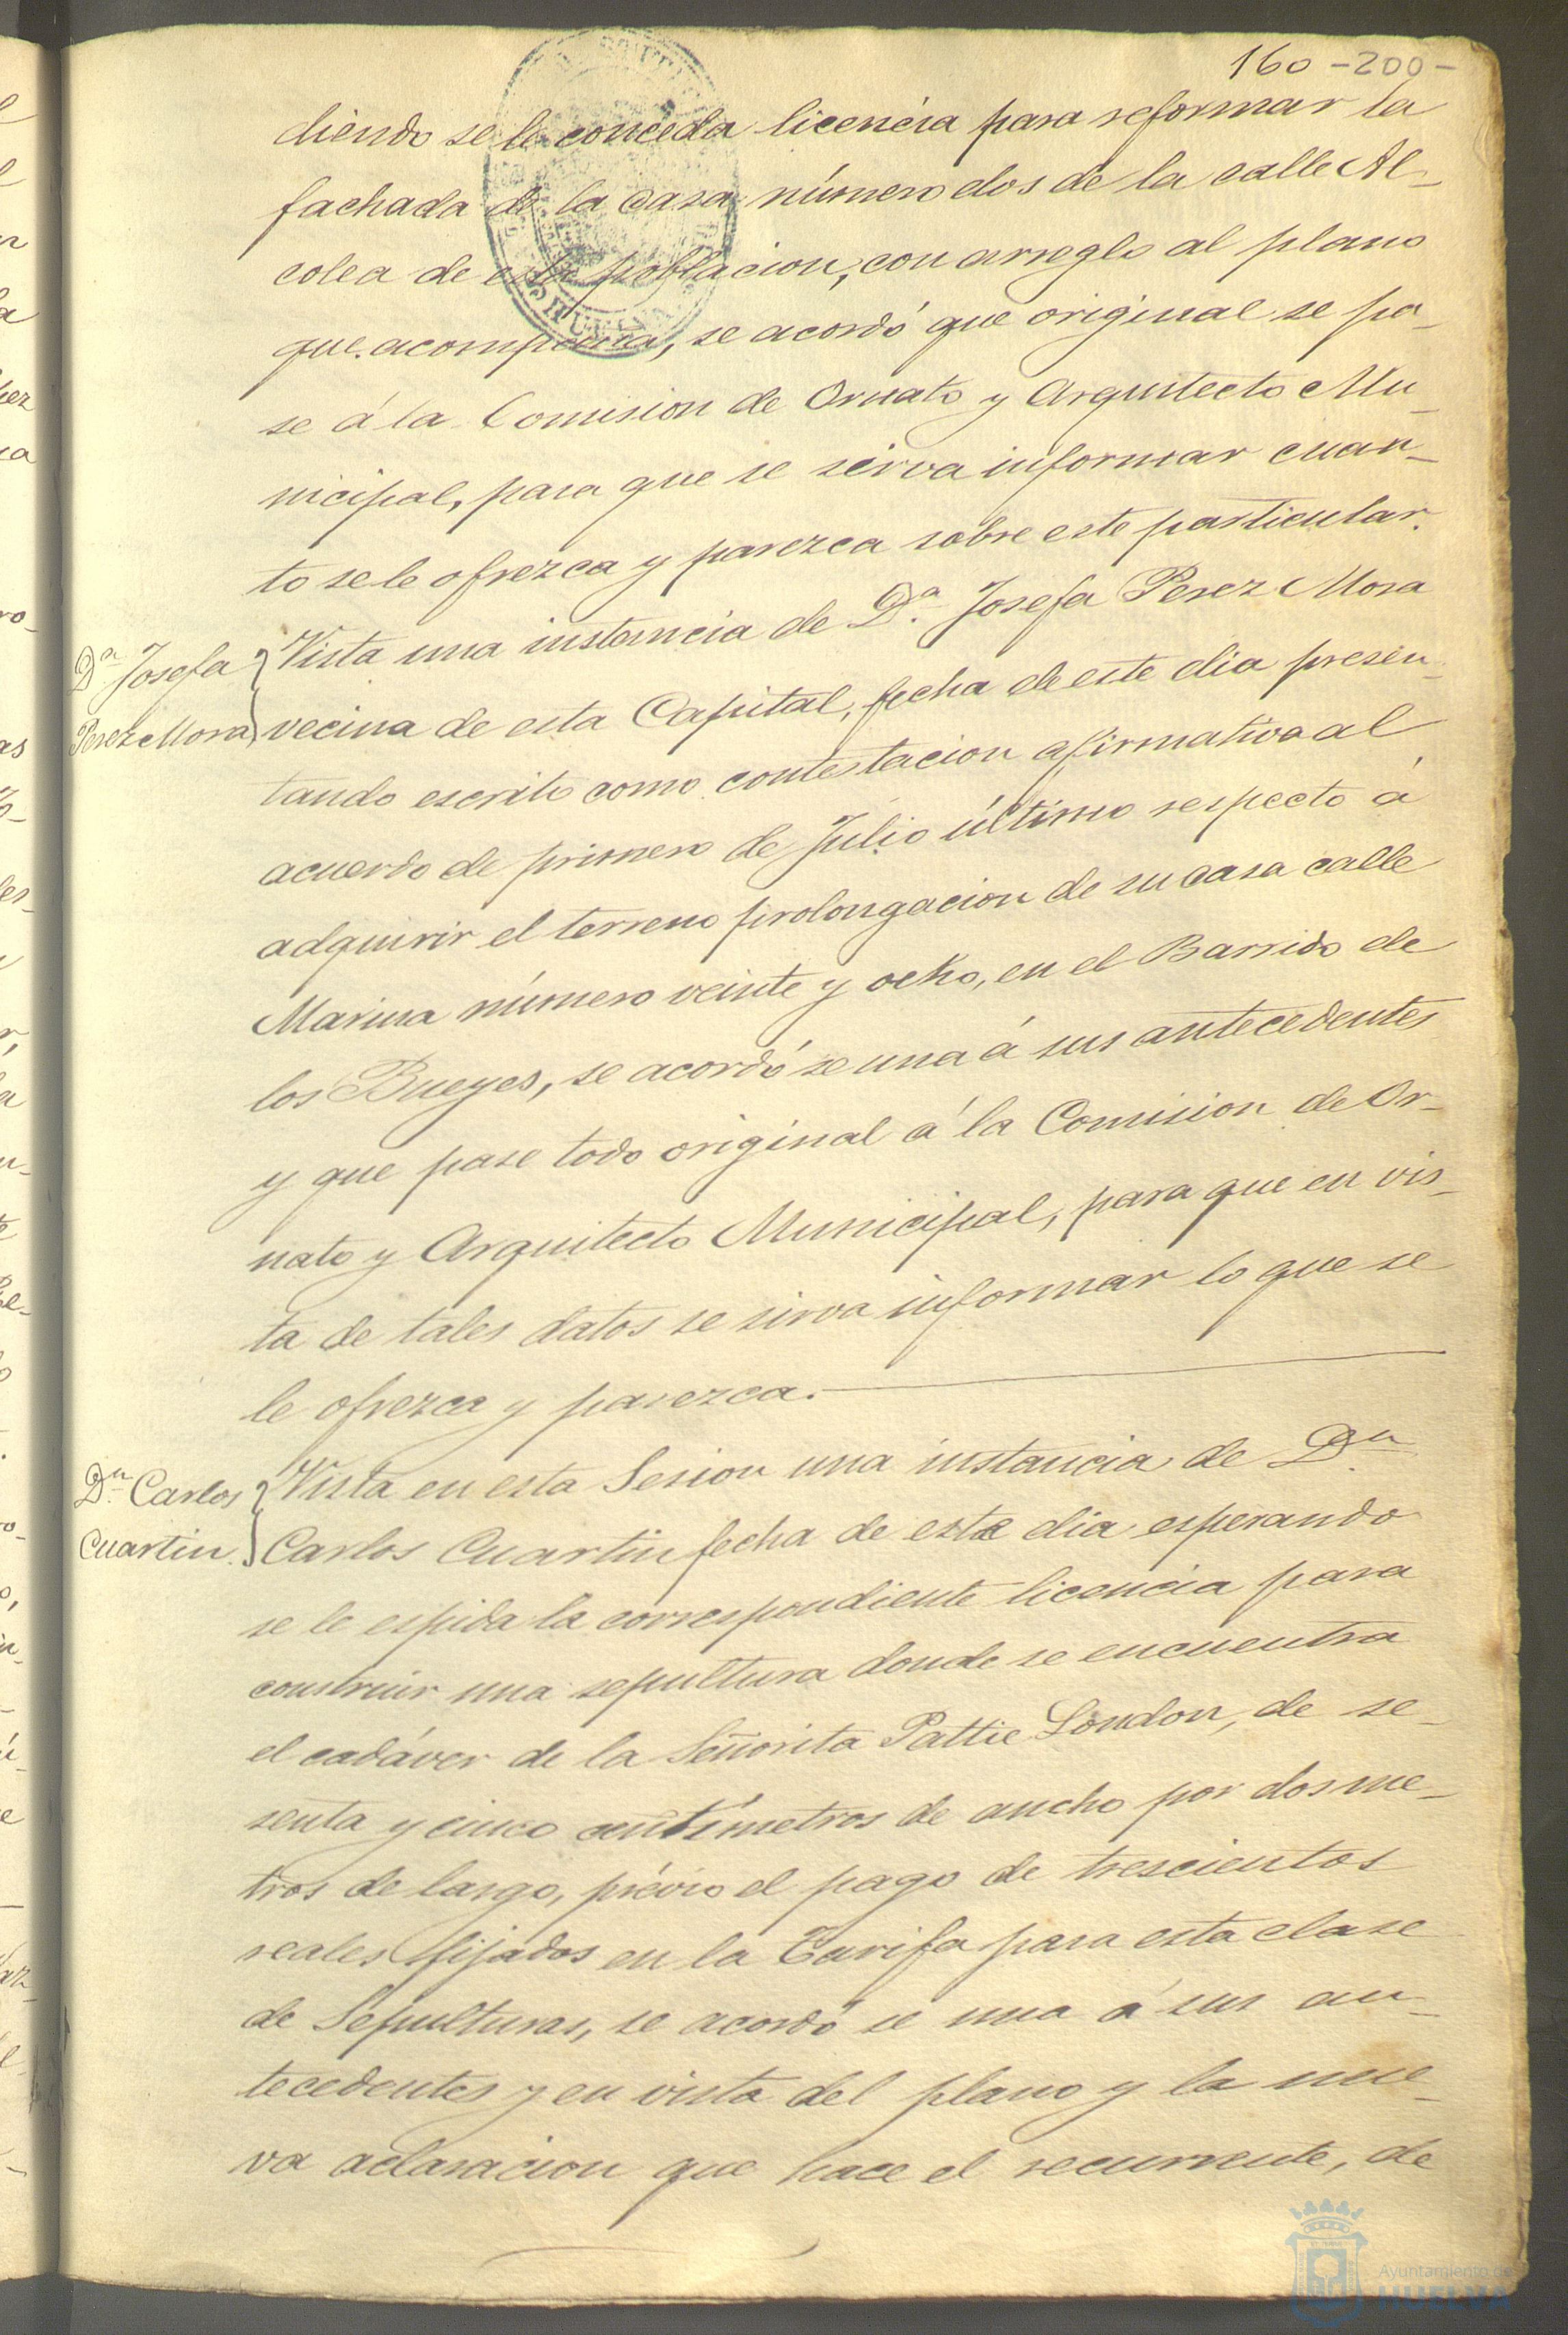 160 - 200 -
diendo se le conceda licencia para reformar la
fachada de la casa número dos de la calle Al-
colea de esta poblacion, con arreglo al plano
que acompaña, se acordó que original se pa-
se á la Comision de Ornato y Arquitecto Mu-
nicipal, para que se sirva informar cuan-
to se le ofrezca y parezca sobre este particular.
Dª Josefa
Perez Mora
Vista una instancia de Dª. Josefa Perez Mora
vecina de esta Capital, fecha de este dia presen-
tando escrito como contestacion afirmativa al
acuerdo de primero de Julio último respecto á
adquirir el terreno prolongacion de su casa calle
Marina número veinte y ocho, en el Barrido de
los Bueyes, se acordó se una á sus antecedentes
y que pase todo original á la Comision de Or-
nato y Arquitecto Municipal, para que en vis-
ta de tales datos se sirva informar lo que se
le ofrezca y parezca.
Dn Carlos
Cuartin.
Vista en esta Sesion una instancia de Dn.
Carlos Cuartin fecha de este dia esperando
se le espida la correspondiente licencia para
construir una sepultura donde se encuentra
el cadáver de la Señorita Pattie London, de se-
senta y cinco centímetros de ancho por dos me-
tros de largo, prévio el pago de trescientos
reales fijados en la Tarifa para esta clase
de Sepulturas, se acordó se una á sus an-
tecedentes y en vista del plano y la nue-
va aclaracion que hace el recurrente, de
Ayuntamiento de
HUELVA